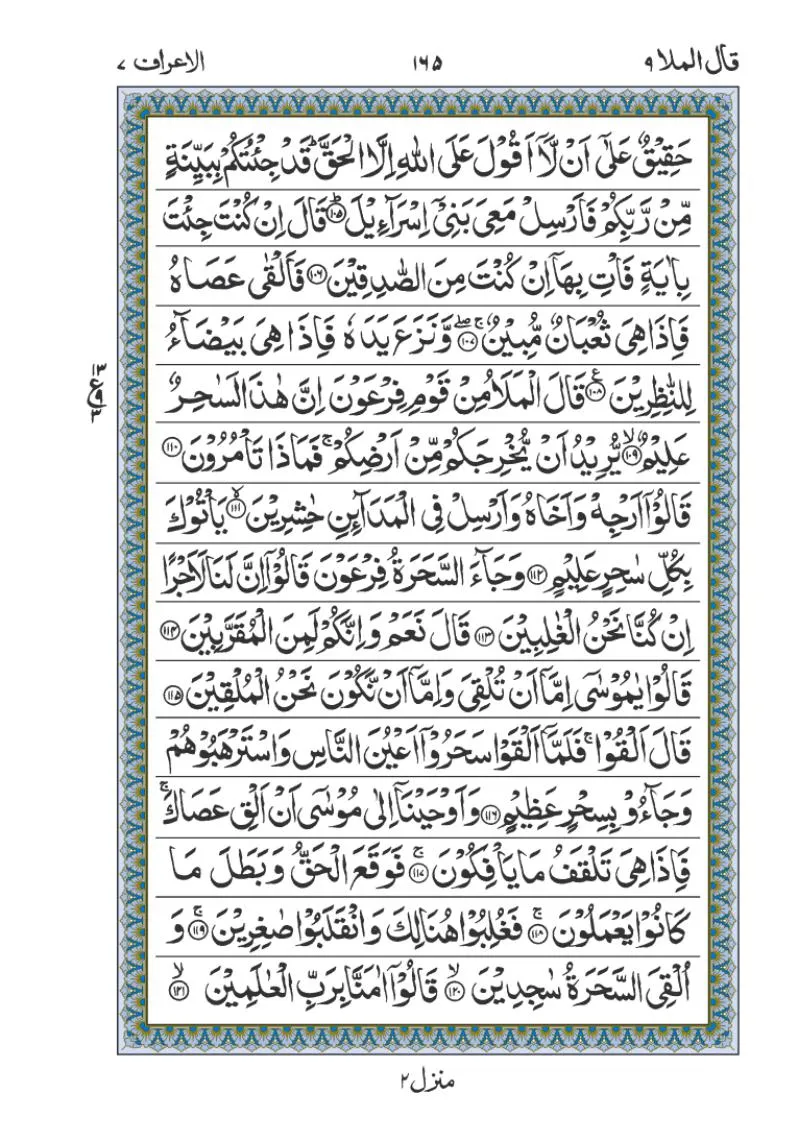 قال الملا ۹ ۱٦۵ الاعراف ۷
حَقِيْقٌ عَلٰٓى اَنْ لَّاۤ اَقُوْلَ عَلَى اللّٰهِ اِلَّا الْحَقَّ ؕ قَدْ جِئْتُكُمْ بِبَيِّنَةٍ
مِّنْ رَّبِّكُمْ فَاَرْسِلْ مَعِىَ بَنِىْۤ اِسْرَآءِيْلَ ؕ‏ ﴿۱۰۵﴾ قَالَ اِنْ كُنْتَ جِئْتَ
بِاٰيَةٍ فَاْتِ بِهَاۤ اِنْ كُنْتَ مِنَ الصّٰدِقِيْنَ ﴿۱۰۶﴾ فَاَلْقٰى عَصَاهُ
فَاِذَا هِىَ ثُعْبَانٌ مُّبِيْنٌ ۚۖ ﴿۱۰۷﴾ وَّنَزَعَ يَدَهٗ فَاِذَا هِىَ بَيْضَآءُ
لِلنّٰظِرِيْنَ ﴿۱۰۸﴾ ع قَالَ الْمَلَاُ مِنْ قَوْمِ فِرْعَوْنَ اِنَّ هٰذَا لَسٰحِرٌ
عَلِيْمٌ ۙ ﴿۱۰۹﴾ يُّرِيْدُ اَنْ يُّخْرِجَكُمْ مِّنْ اَرْضِكُمْ ۚ فَمَاذَا تَاْمُرُوْنَ ﴿۱۱۰﴾
قَالُوْۤا اَرْجِهْ وَاَخَاهُ وَاَرْسِلْ فِى الْمَدَآئِنِ حٰشِرِيْنَ ۙ ﴿۱۱۱﴾ يَاْتُوْكَ
بِكُلِّ سٰحِرٍ عَلِيْمٍ ﴿۱۱۲﴾ وَجَآءَ السَّحَرَةُ فِرْعَوْنَ قَالُوْۤا اِنَّ لَنَا لَاَجْرًا
اِنْ كُنَّا نَحْنُ الْغٰلِبِيْنَ ﴿۱۱۳﴾ قَالَ نَعَمْ وَاِنَّكُمْ لَمِنَ الْمُقَرَّبِيْنَ ﴿۱۱۴﴾
قَالُوْا يٰمُوْسٰٓى اِمَّاۤ اَنْ تُلْقِىَ وَاِمَّاۤ اَنْ نَّكُوْنَ نَحْنُ الْمُلْقِيْنَ ﴿۱۱۵﴾
قَالَ اَلْقُوْا ۚ فَلَمَّاۤ اَلْقَوْا سَحَرُوْۤا اَعْيُنَ النَّاسِ وَاسْتَرْهَبُوْهُمْ
وَجَآءُوْ بِسِحْرٍ عَظِيْمٍ ﴿۱۱۶﴾ وَاَوْحَيْنَاۤ اِلٰى مُوْسٰٓى اَنْ اَلْقِ عَصَاكَ ۚ
فَاِذَا هِىَ تَلْقَفُ مَا يَاْفِكُوْنَ ۚ ﴿۱۱۷﴾ فَوَقَعَ الْحَقُّ وَبَطَلَ مَا
كَانُوْا يَعْمَلُوْنَ ۚ ﴿۱۱۸﴾ فَغُلِبُوْا هُنَالِكَ وَانْقَلَبُوْا صٰغِرِيْنَ ۚ ﴿۱۱۹﴾ وَ
اُلْقِىَ السَّحَرَةُ سٰجِدِيْنَ ۙ ﴿۱۲۰﴾ قَالُوْۤا اٰمَنَّا بِرَبِّ الْعٰلَمِيْنَ ۙ ﴿۱۲۱﴾
منزل ۲